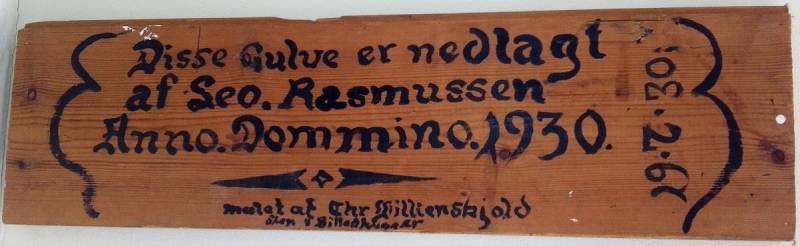 Disse Gulve er nedlagt
af Leo. Rasmussen
Anno. Dommino. 1930.
malet af Chr Willienskjold
19.2.30.